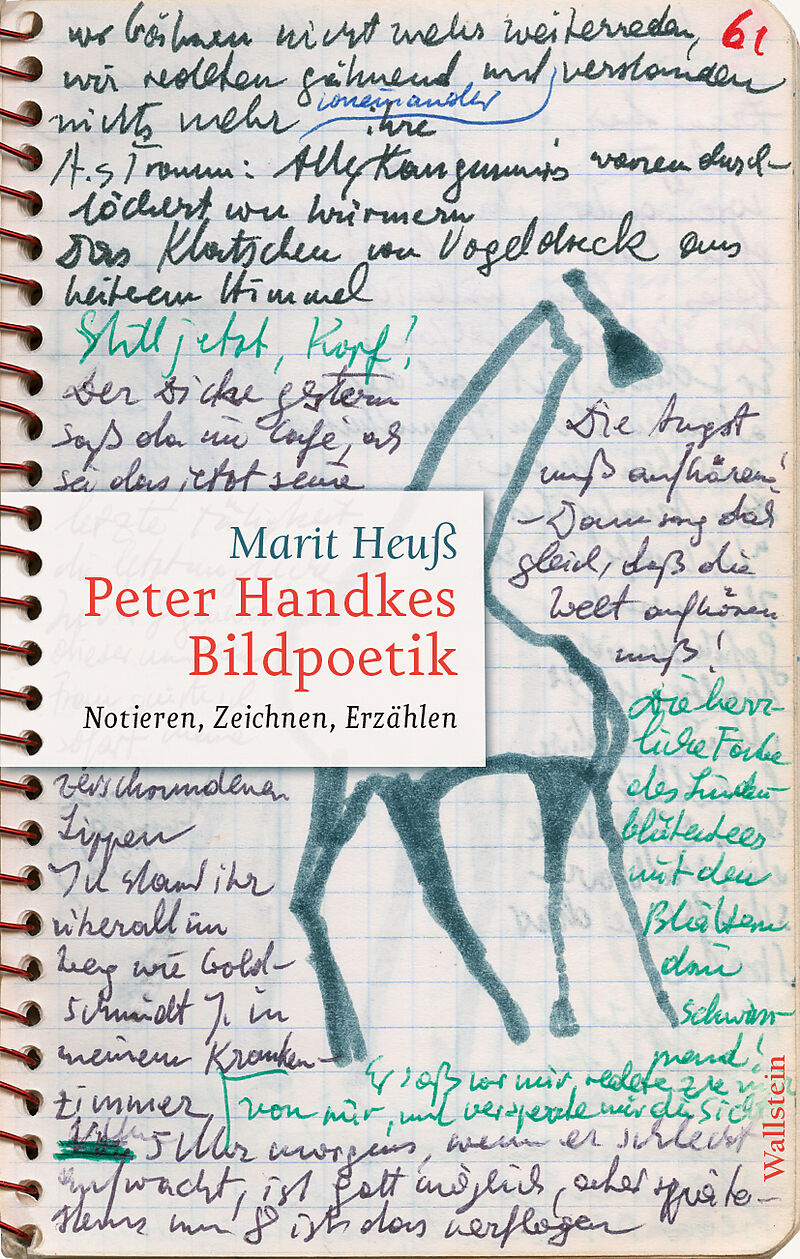 wir gähnend nicht mehr weiterreden, 61
wir redeten gähnend und verstanden
nichts mehr voneinander ihre
A.s Traum: Alle Kaugummis waren durch-
löchert von Würmern
Das Klatschen von Vogeldreck aus
heiterem Himmel
Still jetzt, Kopf!
Der Dicke gestern
saß da im Café, als
sei das jetzt seine
Die Angst
muß aufhören!
– Dann sag doch
gleich, daß die
Welt aufhören
muß!
Marit Heuß
Peter Handkes
Bildpoetik
Notieren, Zeichnen, Erzählen
Die herr-
liche Farbe
des Linden-
blütentees
mit den
Blättern
drin
schwim-
mend!
verschwundenen
Lippen
Ich stand ihr
überall im
Weg wie Gold-
schmidt in
meinem Kranken-
zimmer
Er saß vor mir, redete zu mir
von mir, und versperrte mir die Sicht
5 Uhr morgens, wenn er schlecht
aufwacht, ist Gott möglich, aber späte-
stens um 8 ist das verflogen
Wallstein